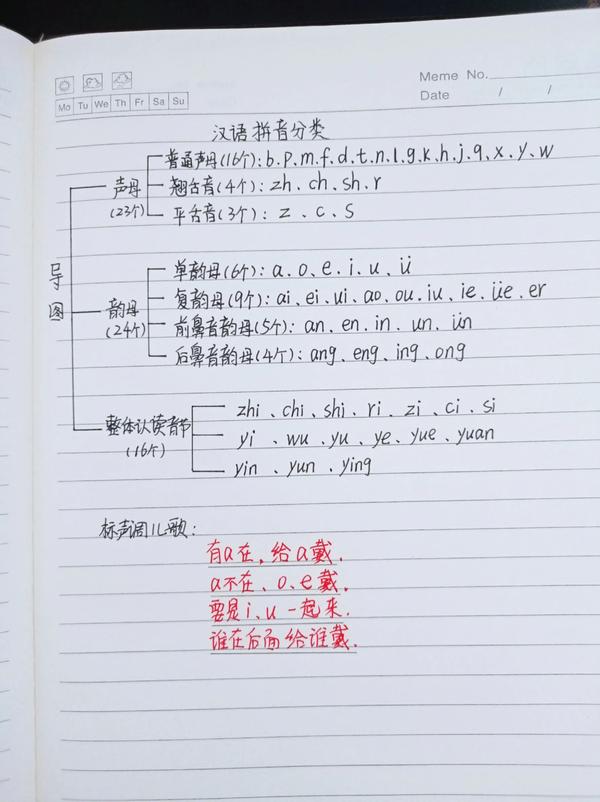 Meme No.
Date / /
Mo Tu We Th Fr Sa Su
汉语拼音分类
导图
声母(23个)
普通声母(16个):b、p、m、f、d、t、n、l、g、k、h、j、q、x、y、w
翘舌音(4个):zh、ch、sh、r
平舌音(3个):z、c、s
韵母(24个)
单韵母(6个):a、o、e、i、u、ü
复韵母(9个):ai、ei、ui、ao、ou、iu、ie、üe、er
前鼻音韵母(5个):an、en、in、un、ün
后鼻音韵母(4个):ang、eng、ing、ong
整体认读音节(16个)
zhi、chi、shi、ri、zi、ci、si
yi、wu、yu、ye、yue、yuan
yin、yun、ying
标声调儿歌:
有a在,给a戴.
a不在、o、e戴.
要是i、u一起来.
谁在后面给谁戴.